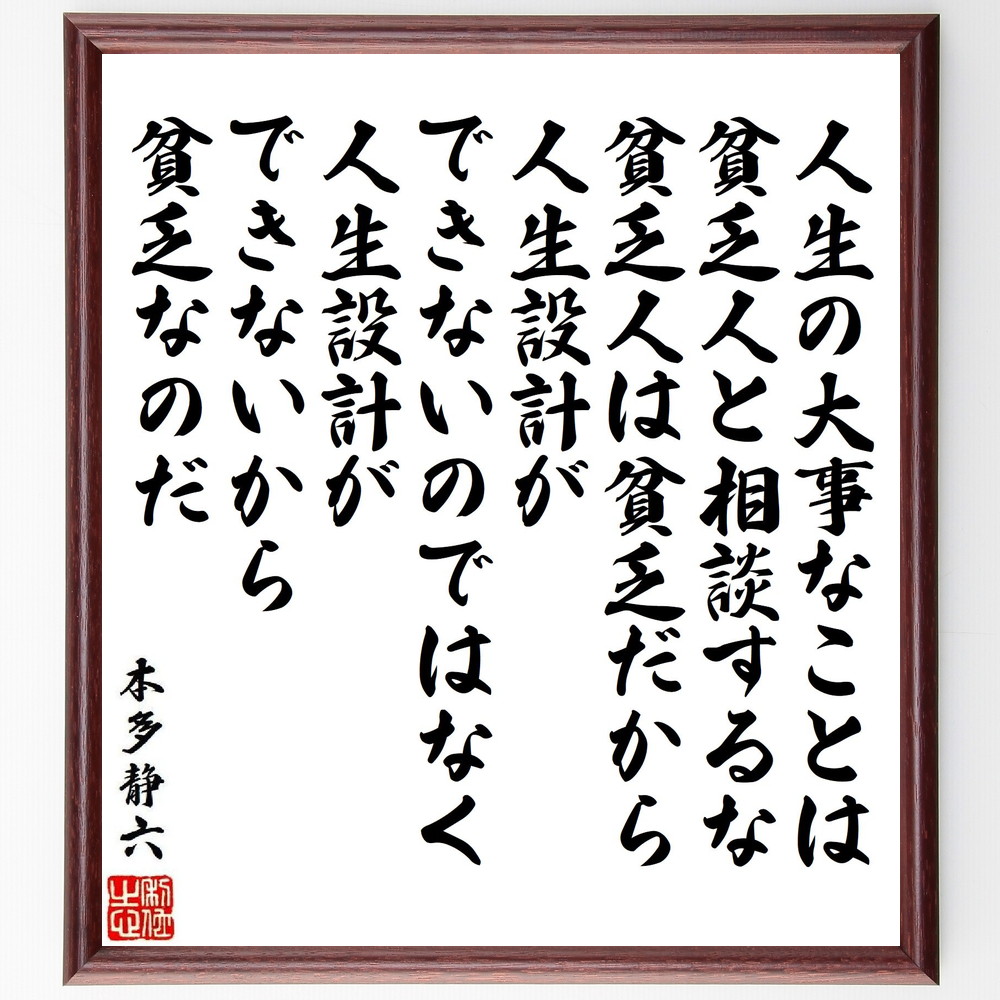 人生の大事なことは
貧乏人と相談するな
貧乏人は貧乏だから
人生設計が
できないのではなく
人生設計が
できないから
貧乏なのだ
本多静六